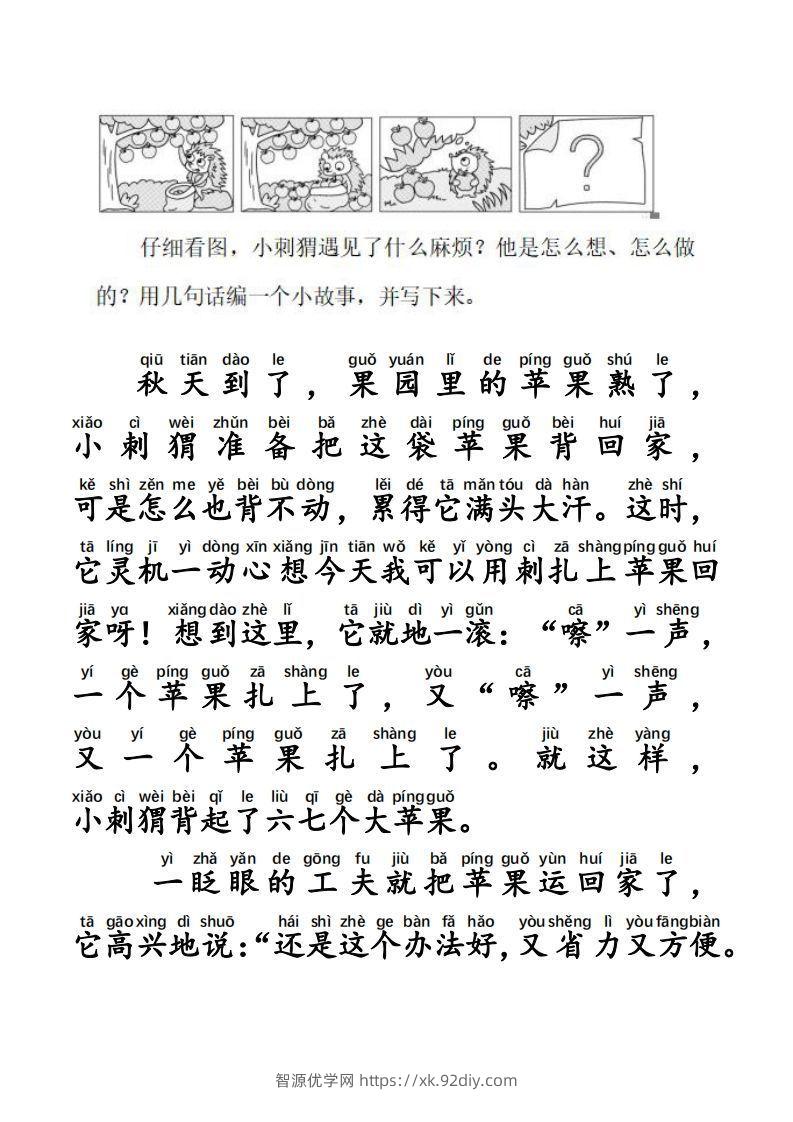 ?
仔细看图，小刺猬遇见了什么麻烦？他是怎么想、怎么做
的？用几句话编一个小故事，并写下来。
qiū tiān dào le guǒ yuán lǐ de píng guǒ shú le
秋天到了，果园里的苹果熟了，
xiǎo cì wèi zhǔn bèi bǎ zhè dài píng guǒ bèi huí jiā
小刺猬准备把这袋苹果背回家，
kě shì zěn me yě bèi bù dòng lěi dé tā mǎn tóu dà hàn zhè shí
可是怎么也背不动，累得它满头大汗。这时，
tā líng jī yì dòng xīn xiǎng jīn tiān wǒ kě yǐ yòng cì zā shàng píng guǒ huí
它灵机一动心想今天我可以用刺扎上苹果回
jiā ya xiǎng dào zhè lǐ tā jiù dì yì gǔn cā yì shēng
家呀！想到这里，它就地一滚：“嚓”一声，
yí gè píng guǒ zā shàng le yòu cā yì shēng
一个苹果扎上了，又“嚓”一声，
yòu yí gè píng guǒ zā shàng le jiù zhè yàng
又一个苹果扎上了。就这样，
xiǎo cì wèi bèi qǐ le liù qī gè dà píng guǒ
小刺猬背起了六七个大苹果。
yì zhǎ yǎn de gōng fu jiù bǎ píng guǒ yùn huí jiā le
一眨眼的工夫就把苹果运回家了，
tā gāo xìng dì shuō hái shì zhè ge bàn fǎ hǎo yòu shěng lì yòu fāng biàn
它高兴地说：“还是这个办法好，又省力又方便。
智源优学网 https://xk.92diy.com